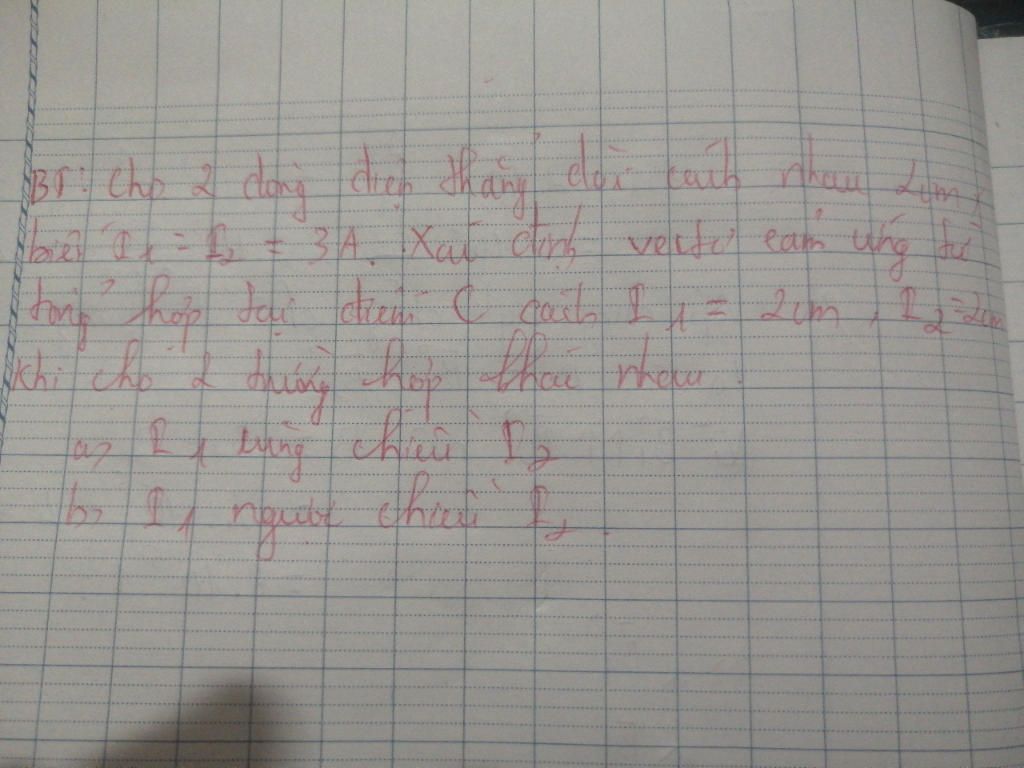 BT: Cho 2 dòng điện thẳng dài cách nhau 2cm,
biết I1 = I2 = 3A. Xác định vectơ cảm ứng từ
tổng hợp tại điểm C cách I1 = 2cm, I2 = 2cm
khi cho 2 trường hợp khác nhau.
a> I1 cùng chiều I2
b> I1 ngược chiều I2.